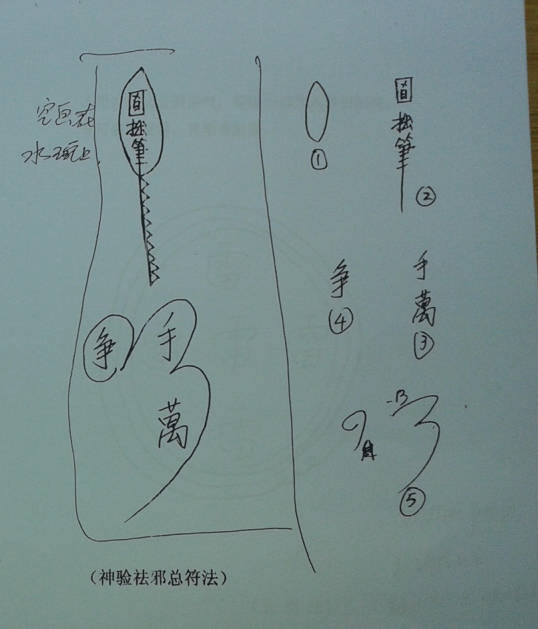 空画在
水碗上
拙
筆
争
手
萬
①
拙
筆
②
争
④
手
萬
③
⑤
（神验祛邪总符法）